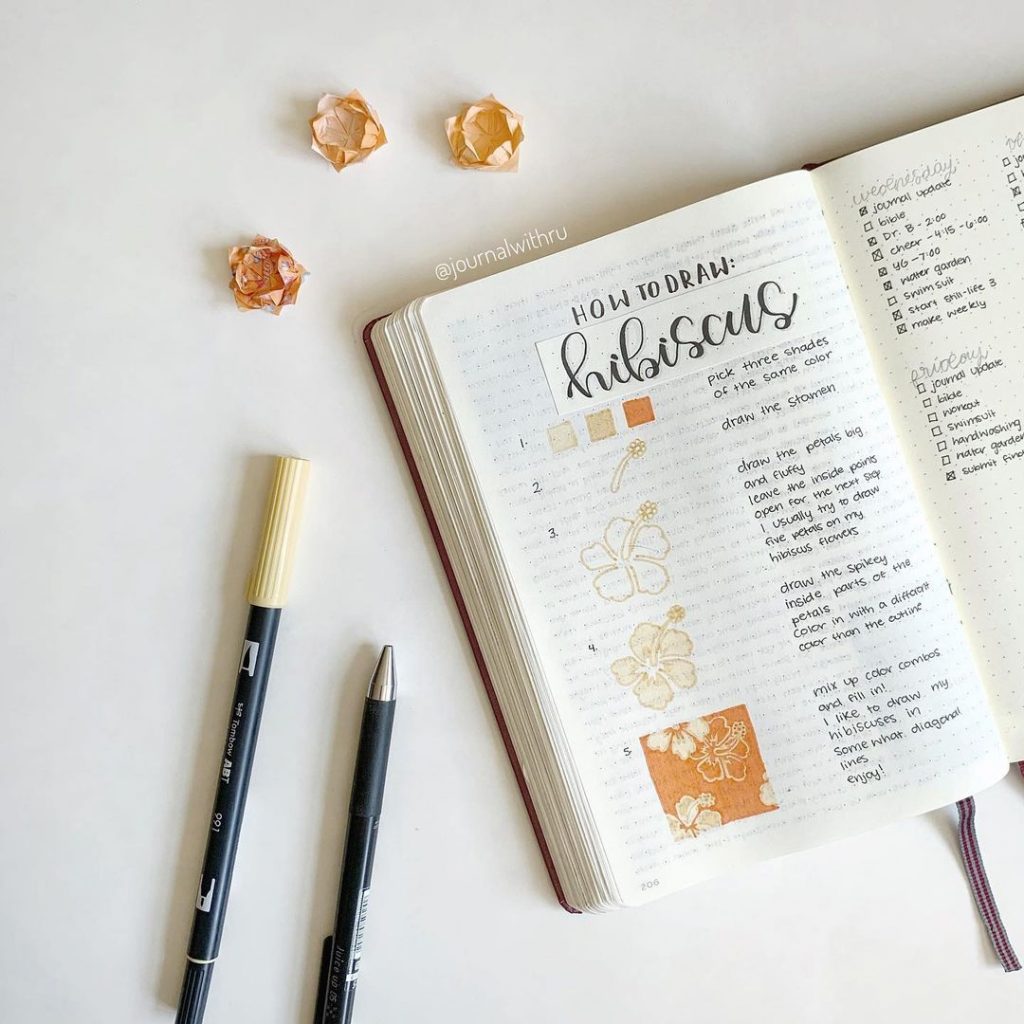 @journalwithru
HOW TO DRAW:
hibiscus
1.
pick three shades
of the same color
2.
draw the stamen
3.
draw the petals big
and fluffy
leave the inside points
open for the next step
I usually try to draw
five petals on my
hibiscus flowers
4.
draw the spikey
inside parts of the
petals
color in with a different
color than the outline
5.
mix up color combos
and fill in!
I like to draw my
hibiscuses in
somewhat diagonal
lines
enjoy!
206
wednesday:
journal update
bible
Dr. B - 2:00
cheer - 4:15 - 6:00
YG - 7:00
water garden
swimsuit
start still-life 3
make weekly
friday:
journal update
bible
workout
swimsuit
handwashing
water garden
submit
Tombow ABT
991
Juice up 05